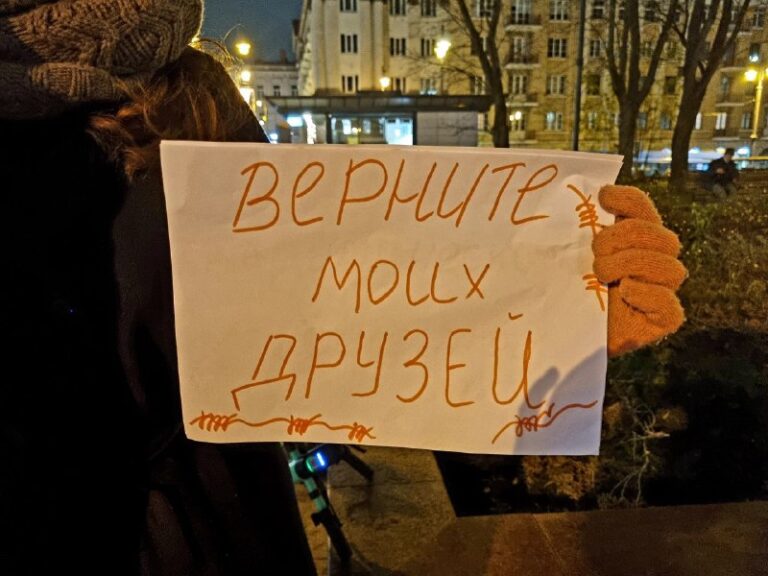 ВЕРНИТЕ
МОИХ
ДРУЗЕЙ